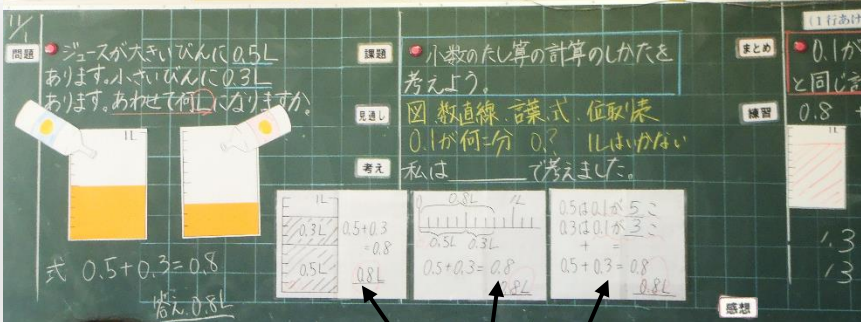 11/1
問題
ジュースが大きいびんに0.5L
あります。小さいびんに0.3L
あります。あわせて何Lになりますか。
1L
1L
式 0.5+0.3=0.8
答え 0.8L
課題
小数のたし算の計算のしかたを
考えよう。
見通し
図 数直線 言葉 式 位取り表
0.1が何こ分 0.? 1Lはいかない
考え
私は______で考えました。
1L
0.3L
0.5L
0.5+0.3
=0.8
0.8L
0
0.8L
1L
0.5L 0.3L
0.5+0.3=0.8
0.8L
0.5は0.1が5こ
0.3は0.1が3こ
+ =
0.5+0.3=0.8
0.8L
感想
(1行あけ
まとめ
0.1か
と同じ
練習
0.8
1L
1.3
13